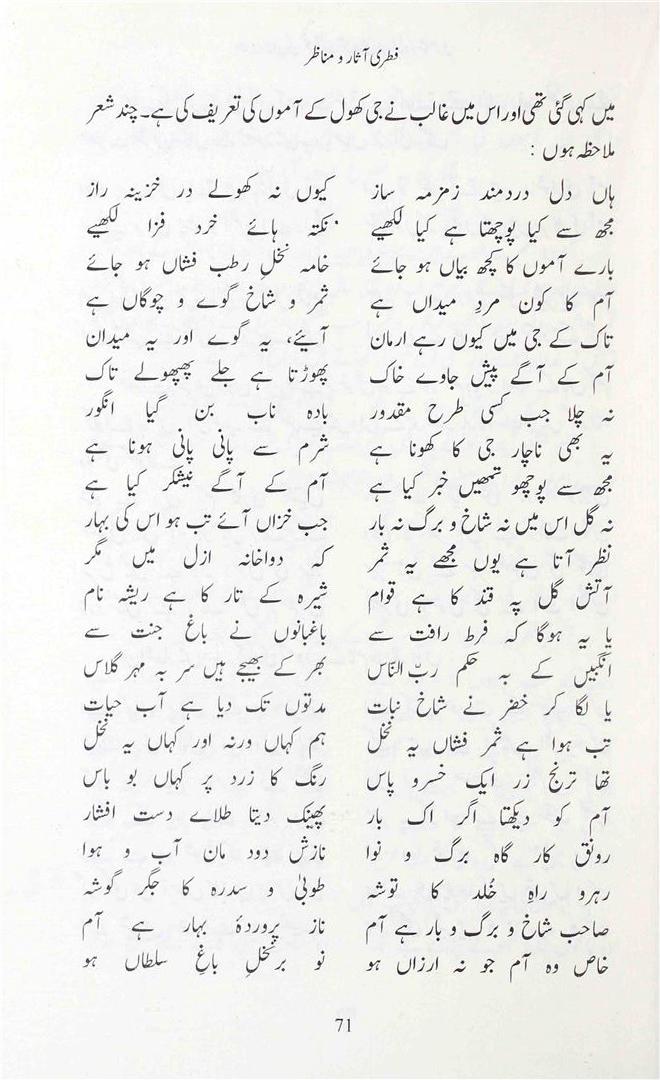 فطری آثار و مناظر
میں کہی گئی تھی اور اس میں غالب نے جی کھول کے آموں کی تعریف کی ہے۔ چند شعر
ملاحظہ ہوں :
ہاں دل دردمند زمزمہ ساز کیوں نہ کھولے در خزینہ راز
مجھ سے کیا پوچھتا ہے کیا لکھیے نکتہ ہائے خرد فزا لکھیے
بارے آموں کا کچھ بیاں ہو جائے خامہ نخلِ رطب فشاں ہو جائے
آم کا کون مردِ میداں ہے ثمر و شاخ گوے و چوگاں ہے
تاک کے جی میں کیوں رہے ارمان آیئے، یہ گوے اور یہ میدان
آم کے آگے پیش جاوے خاک پھوڑتا ہے جلے پھپھولے تاک
نہ چلا جب کسی طرح مقدور بادہ ناب بن گیا انگور
یہ بھی ناچار جی کا کھونا ہے شرم سے پانی پانی ہونا ہے
مجھ سے پوچھو تمھیں خبر کیا ہے آم کے آگے نیشکر کیا ہے
نہ گل اس میں نہ شاخ و برگ نہ بار جب خزاں آئے تب ہو اس کی بہار
نظر آتا ہے یوں مجھے یہ ثمر کہ دواخانہ ازل میں مگر
آتش گل پہ قند کا ہے قوام شیرہ کے تار کا ہے ریشہ نام
یا یہ ہوگا کہ فرط رافت سے باغبانوں نے باغِ جنت سے
انگبیں کے بہ حکم ربّ النّاس بھر کے بھیجے ہیں سر بہ مہر گلاس
یا لگا کر خضر نے شاخ نبات مدتوں تک دیا ہے آب حیات
تب ہوا ہے ثمر فشاں یہ نخل ہم کہاں ورنہ اور کہاں یہ نخل
تھا ترنج زر ایک خسرو پاس رنگ کا زرد پر کہاں بو باس
آم کو دیکھتا اگر اک بار پھینک دیتا طلاے دست افشار
رونق کار گاہ برگ و نوا نازش دود مان آب و ہوا
رہرو راہِ خُلد کا توشہ طوبیٰ و سدرہ کا جگر گوشہ
صاحب شاخ و برگ و بار ہے آم ناز پروردۂ بہار ہے آم
خاص وہ آم جو نہ ارزاں ہو نو برنخلِ باغِ سلطاں ہو
71